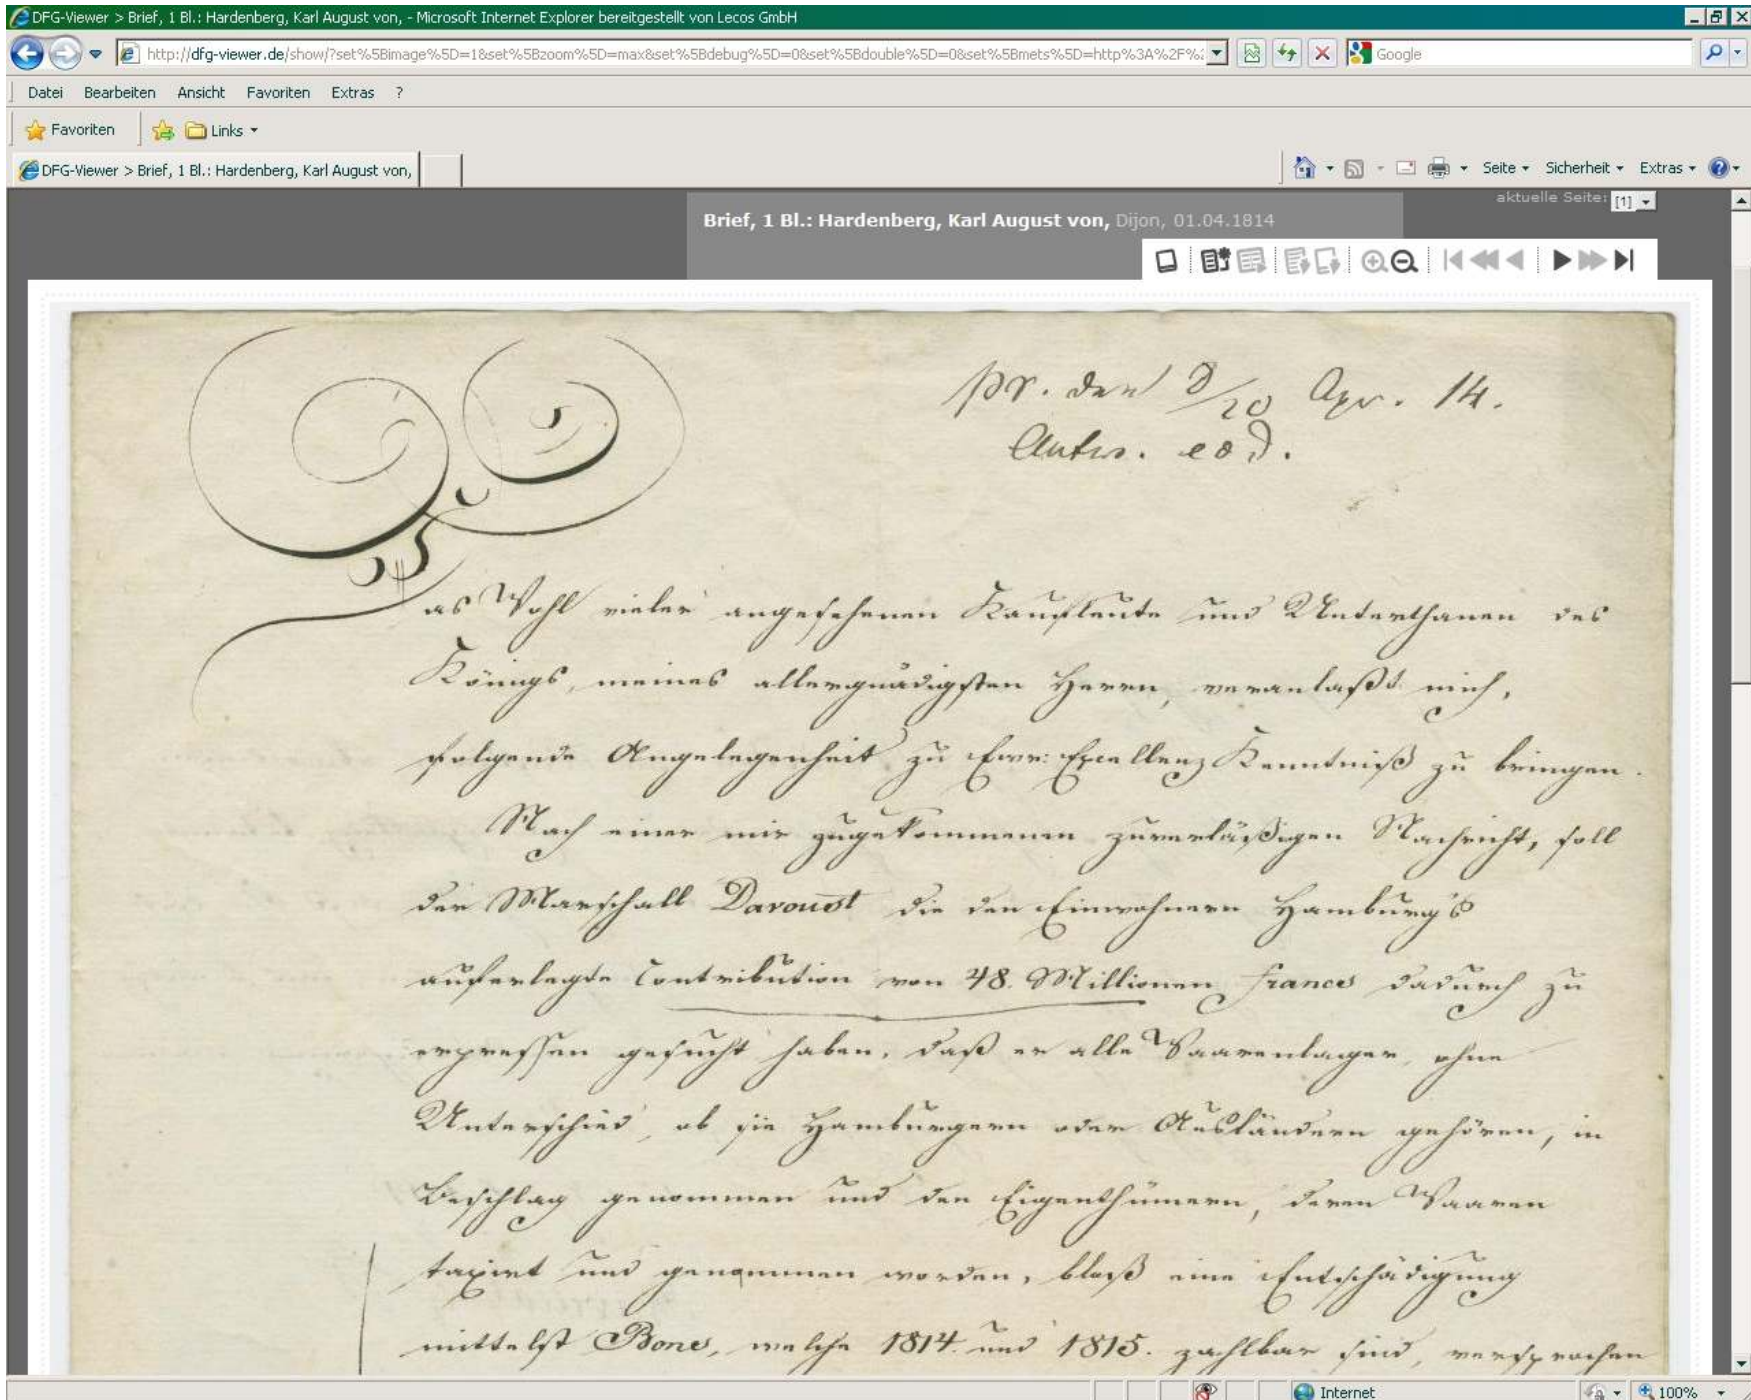 DFG-Viewer > Brief, 1 Bl.: Hardenberg, Karl August von, - Microsoft Internet Explorer bereitgestellt von Lecos GmbH
http://dfg-viewer.de/show/?set%5Bimage%5D=1&set%5Bzoom%5D=max&set%5Bdebug%5D=0&set%5Bdouble%5D=0&set%5Bmets%5D=http%3A%2F%
Google
Datei Bearbeiten Ansicht Favoriten Extras ?
Favoriten Links
DFG-Viewer > Brief, 1 Bl.: Hardenberg, Karl August von,
Seite Sicherheit Extras
aktuelle Seite: [1]
Brief, 1 Bl.: Hardenberg, Karl August von, Dijon, 01.04.1814
pr. den 8/20 Apr. 14.
Antw. eod.
Das Wohl vieler angesehenen Kaufleute und Unterthanen des
Königs, meines allergnädigsten Herrn, veranlaßt mich,
folgende Angelegenheit zu Ewr: Excellenz Kenntniß zu bringen.
Nach einer mir zugekommenen zuverläßigen Nachricht, soll
der Marschall Davoust die den Einwohnern Hamburg's
auferlegte Contribution von 48. Millionen francs dadurch zu
erpressen gesucht haben, daß er alle Waarenlager, ohne
Unterschied, ob sie Hamburgern oder Ausländern gehören, in
Beschlag genommen und den Eigenthümern, deren Waaren
taxirt und genommen worden, bloß eine Entschädigung
mittelst Bons, welche 1814. und 1815. zahlbar sind, versprochen
Internet
100%